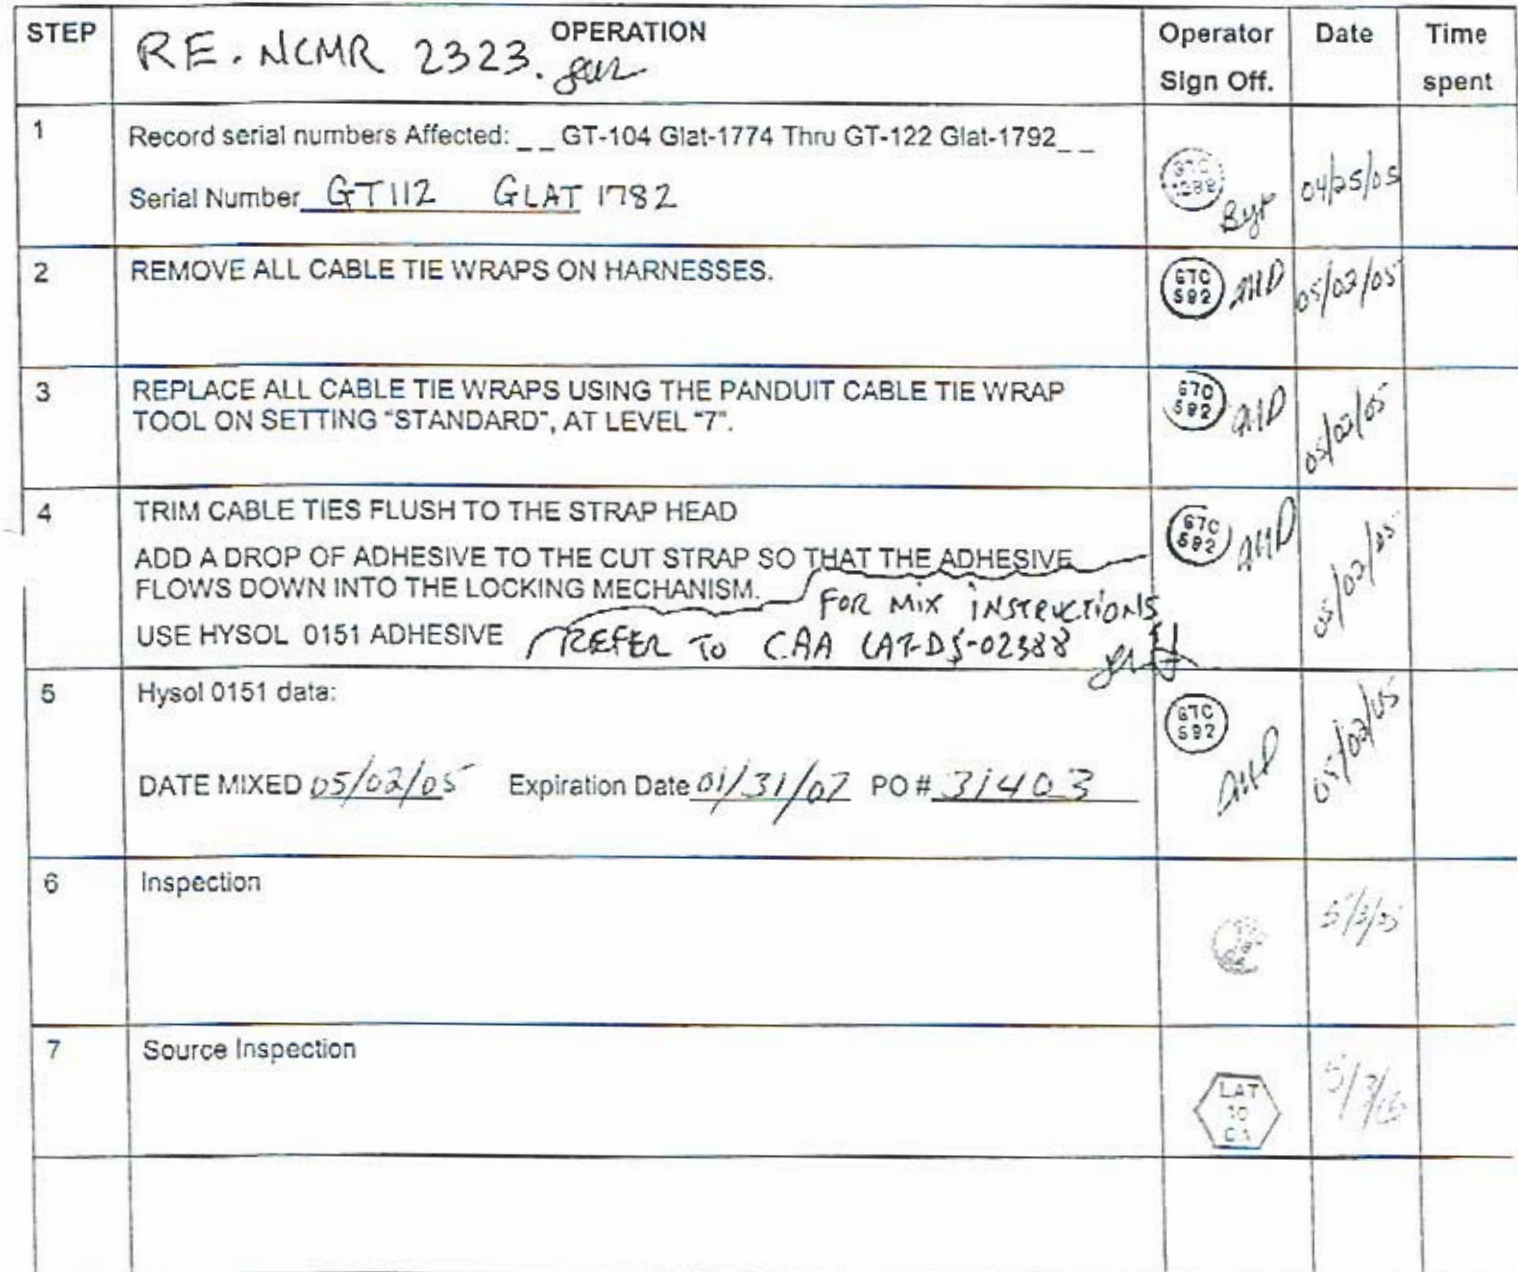 STEP OPERATION Operator Sign Off. Date Time spent
RE. NCMR 2323.
1 Record serial numbers Affected: _ _ GT-104 Glat-1774 Thru GT-122 Glat-1792_ _
Serial Number GT112 GLAT 1782
GTC 1288 04/25/05
2 REMOVE ALL CABLE TIE WRAPS ON HARNESSES.
GTC 592 05/02/05
3 REPLACE ALL CABLE TIE WRAPS USING THE PANDUIT CABLE TIE WRAP
TOOL ON SETTING "STANDARD", AT LEVEL "7".
GTC 592 05/02/05
4 TRIM CABLE TIES FLUSH TO THE STRAP HEAD
ADD A DROP OF ADHESIVE TO THE CUT STRAP SO THAT THE ADHESIVE
FLOWS DOWN INTO THE LOCKING MECHANISM.
FOR MIX INSTRUCTIONS
USE HYSOL 0151 ADHESIVE REFER TO CAA LAT-DS-02388
GTC 592 05/02/05
5 Hysol 0151 data:
DATE MIXED 05/02/05 Expiration Date 01/31/07 PO # 31403
GTC 592 05/02/05
6 Inspection
7 Source Inspection
LAT 10